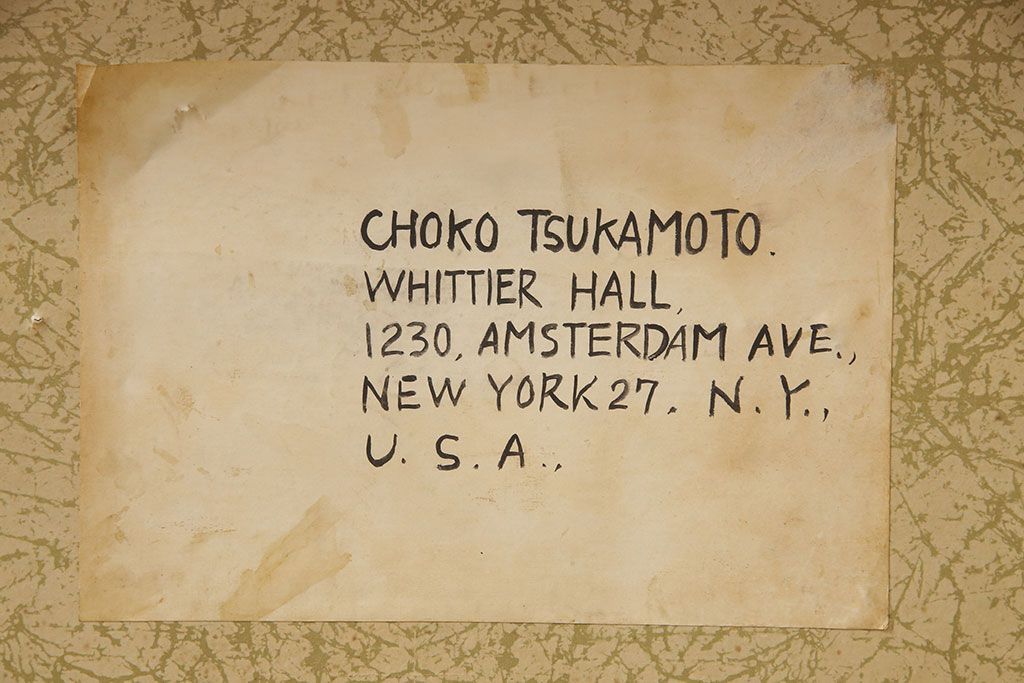 CHOKO TSUKAMOTO.
WHITTIER HALL,
1230, AMSTERDAM AVE.,
NEW YORK 27. N.Y.,
U.S.A.,